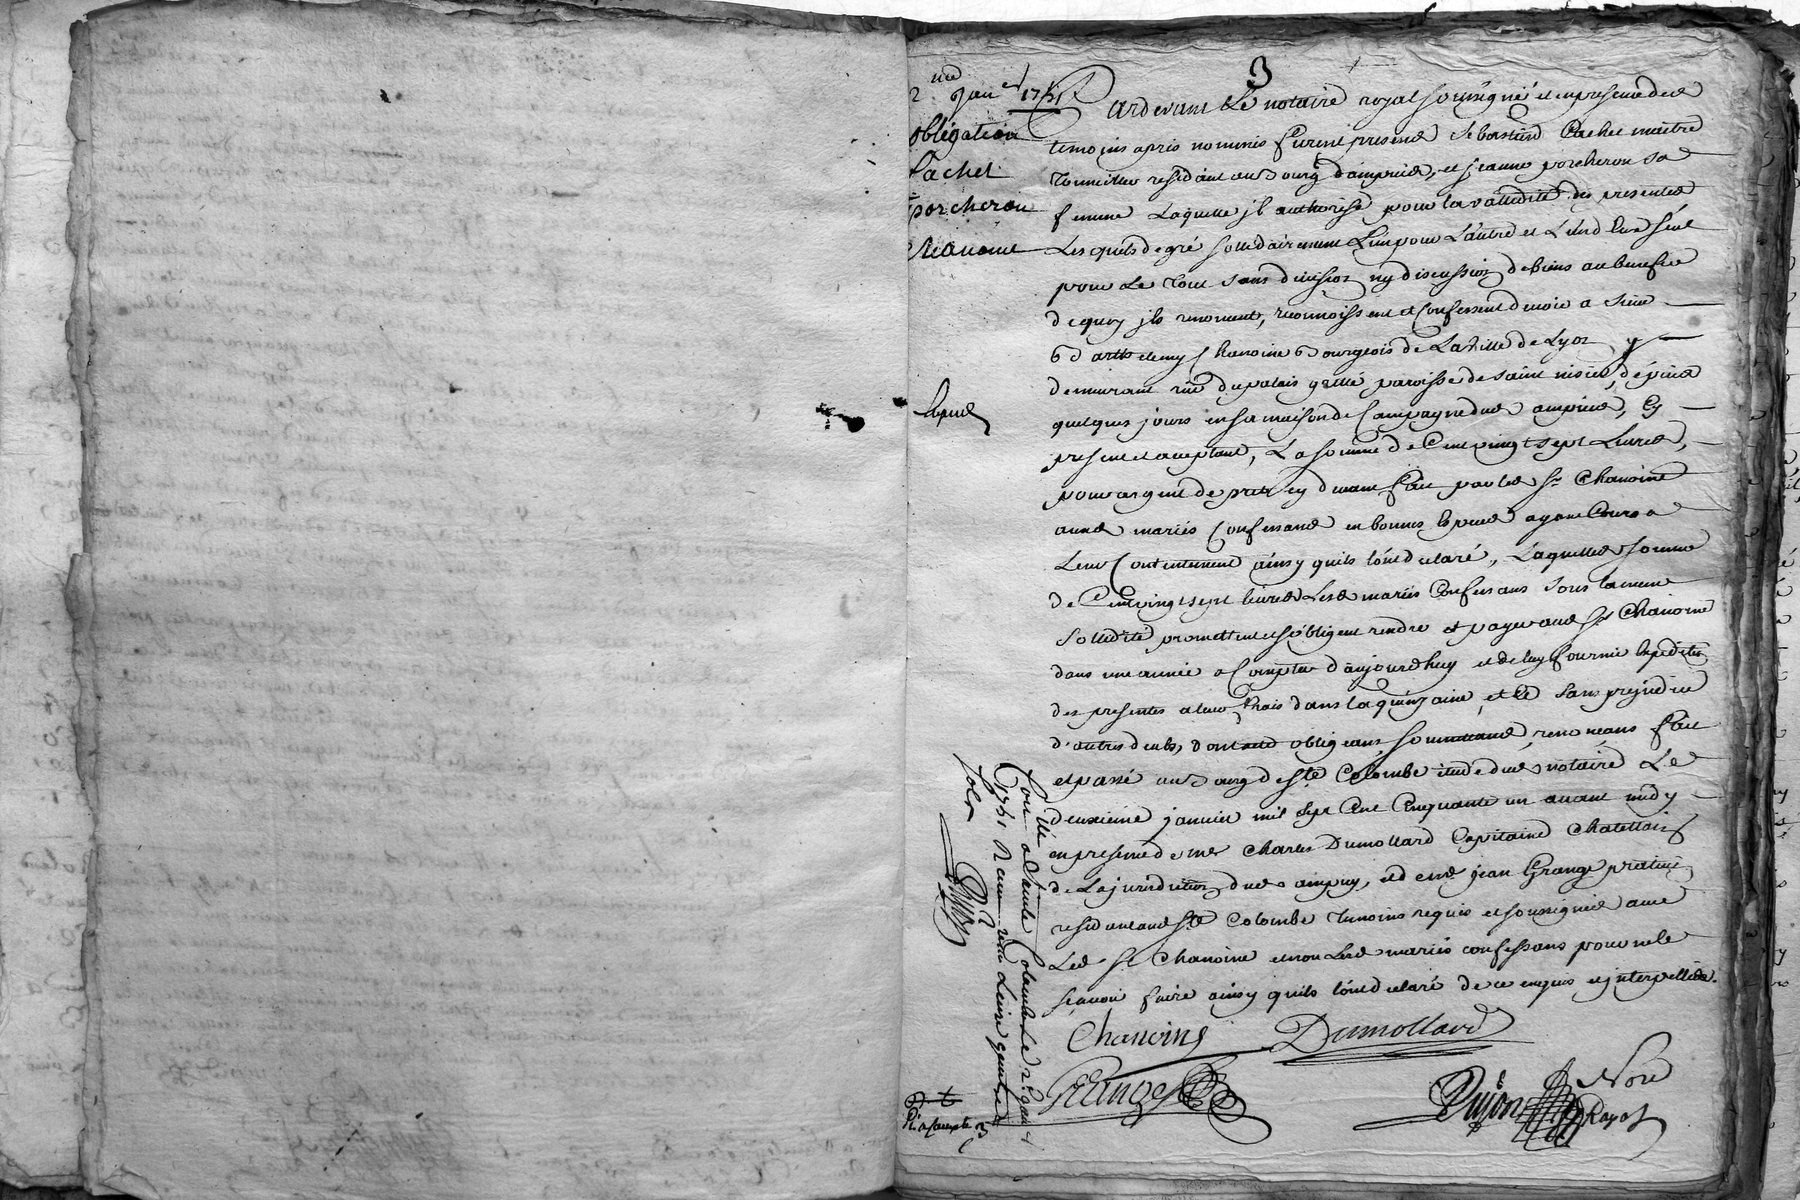 3
2 Janer 1751
Obligation
Cachet
porcheron
Chanoine
Pardevant Le notaire royal soussigné et en presence des
temoins apres nommés furent presens Sebastien Cachet maitre
Tonnellier residant au bourg d'ampuis, et jeanne porcheron sa
femme Laquelle jl authorise pour la vallidité des presentes
Lesquels de gré sollidairement L'un pour L'autre et L'un d'Eux seul
pour Le tout sans division ny discussion de biens au benefice
de quoy jls renoncent, reconnoissent et Confessent devoir a sieur
barthelemy Chanoine bourgeois de La ville de Lyon y
demeurant rue du palais grillé paroisse de saint nisier, depuis
quelques jours en sa maison de Campagne dud ampuis, Cy
present et acceptant, La somme de Cent vingt sept Livres,
pour argent de prest cy devant fait par led sr Chanoine
auxd mariés Confessans en bonnes Especes ayant Cours a
Leur Contentement ainsy quils l'ont declaré, Laquelle somme
de Cent vingt sept livres Lesd mariés Confessans sous la meme
sollidité promettent et s'obligent rendre et payer aud sr Chanoine
dans une année a Compter d'aujourdhuy et de luy fournir Expedition
des presentes a leurs frais dans la quinzaine, et ce sans prejudice
d'autres deubs, dont acte obligeans, soumettans, renonçans fait
et passé au bourg de ste Colombe etude dud notaire Le
deuxieme janvier mil sept Cent Cinquante un avant midy
en presence de me Charles Dumollard Capitaine Chatellain
de La jurisdiction dud ampuy, et de me jean Grange praticien
residant aud ste Colombe temoins requis et soussignés avec
Led sr Chanoine et non Lesd mariés confessans pour ne le
sçavoir faire ainsy quils l'ont declaré de ce enquis et jnterpellés.
Chanoine Dumollard
Grange
Dujon Nore
Royal
Conllé a Sainte Colombe Le 2e Janer
1751 Reçu
sols
Dujon